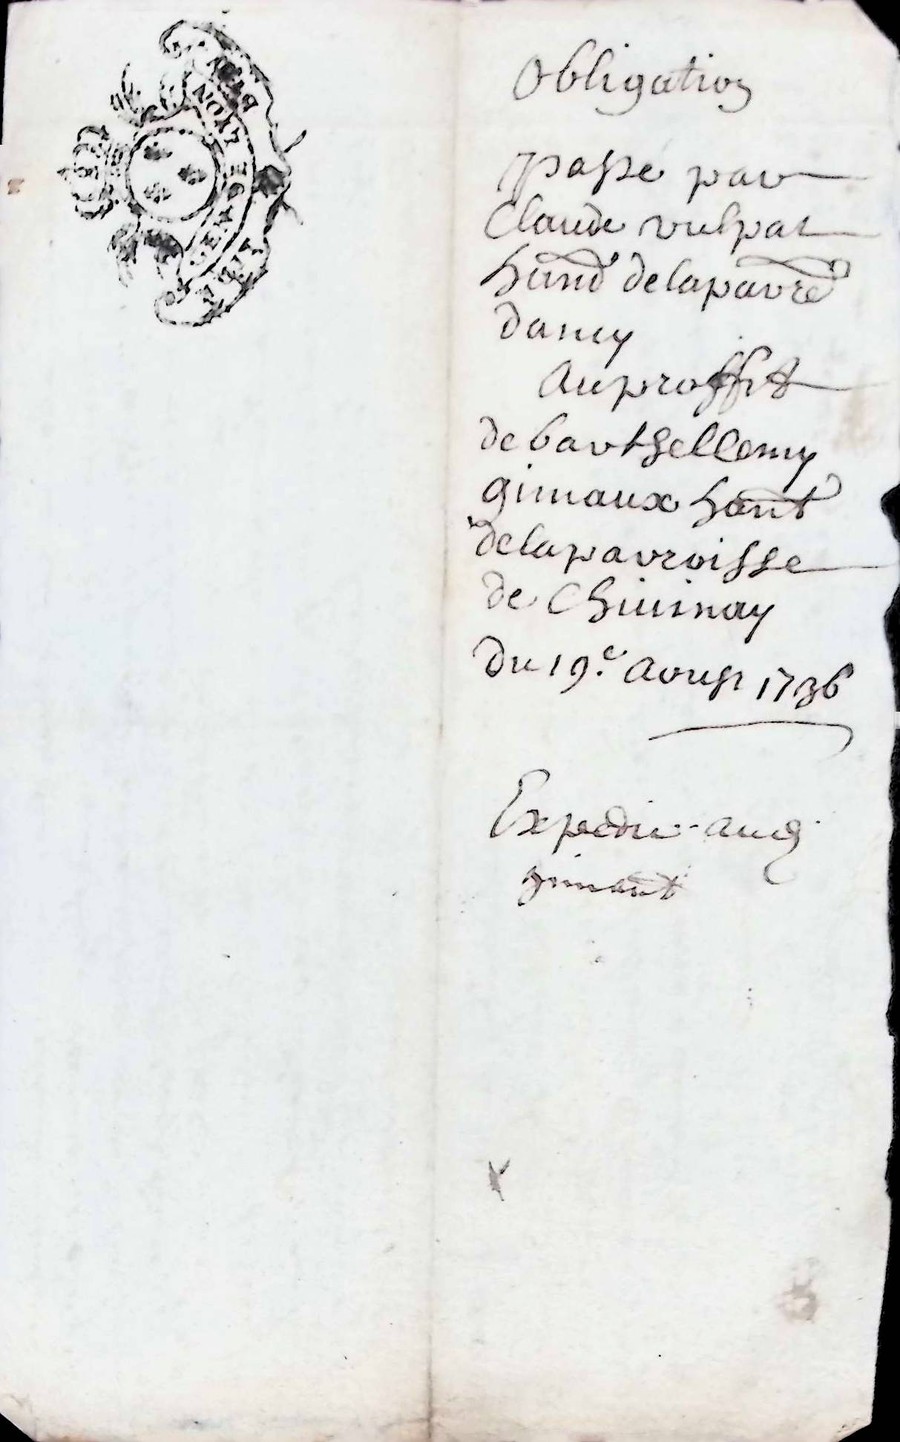 GEN. DE LYON
Obligation
passé par
Claude vulpat
habitant delaparre
dancy
Au proffit
de barthellemy
gimaux habt
delaparroisse
de Chivinay
Du 19.e Aoust 1736
Expedie aud.